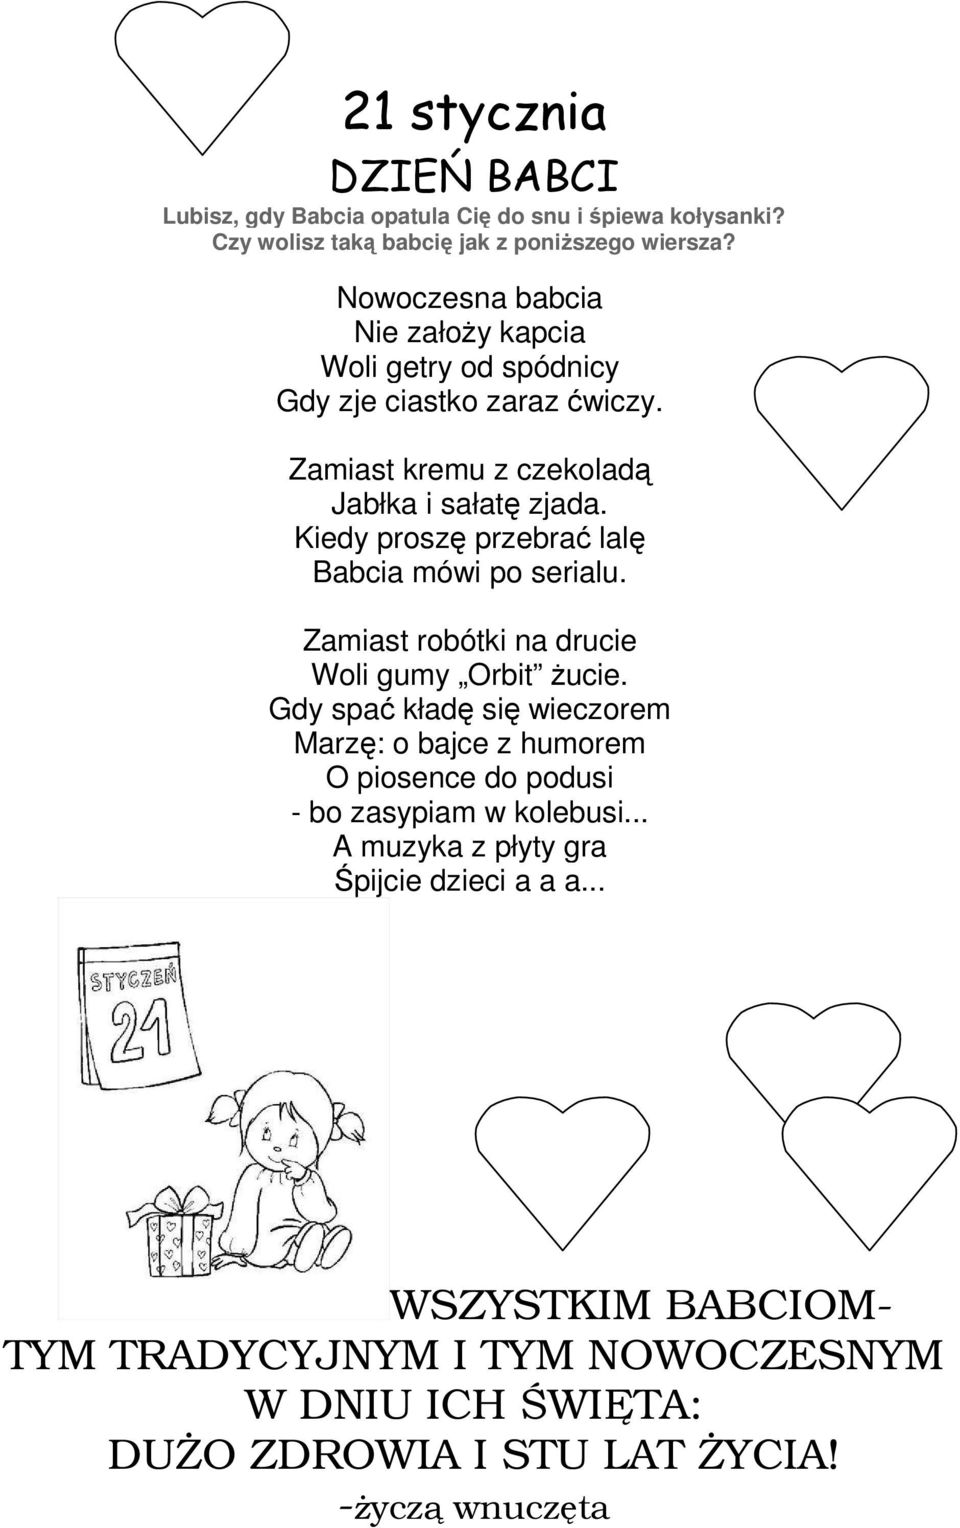 21 stycznia
DZIEŃ BABCI
Lubisz, gdy Babcia opatula Cię do snu i śpiewa kołysanki?
Czy wolisz taką babcię jak z poniższego wiersza?
Nowoczesna babcia
Nie założy kapcia
Woli getry od spódnicy
Gdy zje ciastko zaraz ćwiczy.
Zamiast kremu z czekoladą
Jabłka i sałatę zjada.
Kiedy proszę przebrać lalę
Babcia mówi po serialu.
Zamiast robótki na drucie
Woli gumy „Orbit” żucie.
Gdy spać kładę się wieczorem
Marzę: o bajce z humorem
O piosence do podusi
- bo zasypiam w kolebusi...
A muzyka z płyty gra
Śpijcie dzieci a a a...
STYCZEŃ
21
WSZYSTKIM BABCIOM-
TYM TRADYCYJNYM I TYM NOWOCZESNYM
W DNIU ICH ŚWIĘTA:
DUŻO ZDROWIA I STU LAT ŻYCIA!
-życzą wnuczęta